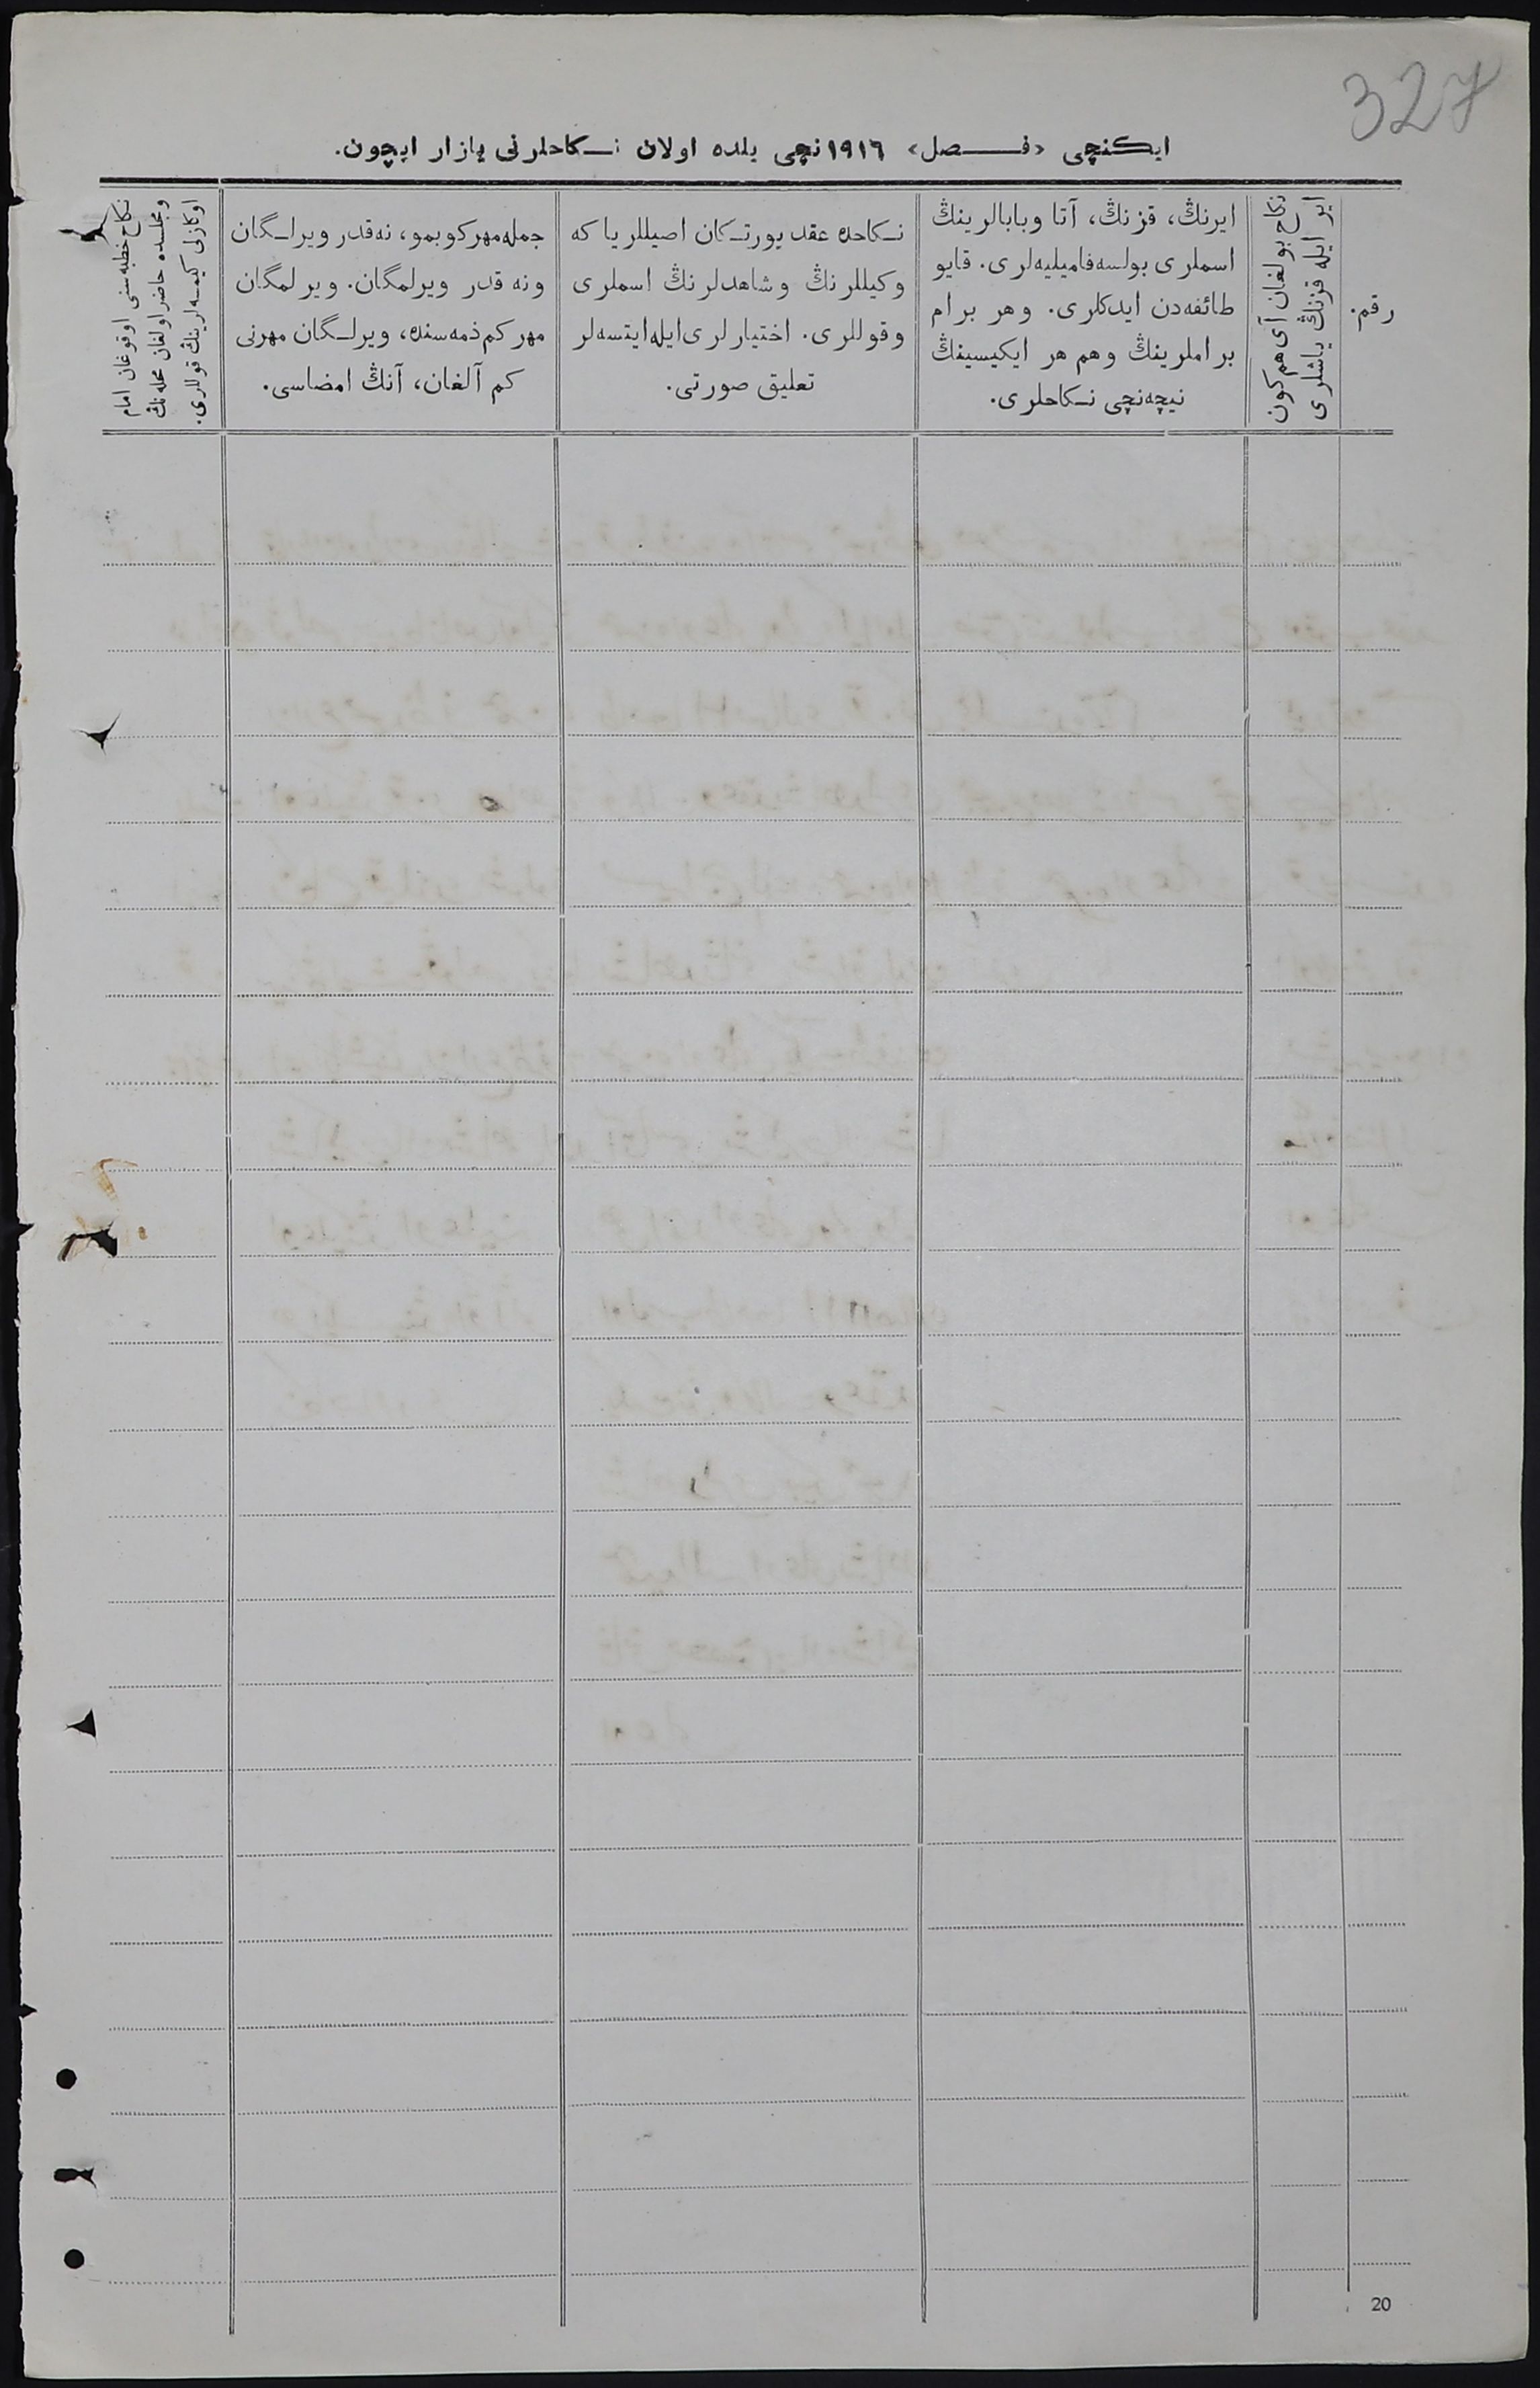 327
ایکنچی «فصل» ١٩١٦نچی یلده اولان نکاحلرنی یازار ایچون.
رقم.
نکاح بولغان آی هم کون
ایر ایله قزنڭ یاشلری
ایرنڭ، قزنڭ، آتا وبابالرینڭ
اسملری بولسه فامیلیه‌لری. قایو
طائفه‌دن ایدکلری. وهر برام
براملرینڭ وهم هر ایکیسینڭ
نیچه‌نچی نکاحلری.
نکاحده عقد یورتکان اصیللر یا که
وکیللرنڭ وشاهدلرنڭ اسملری
وقوللری. اختیارلری ایله ایتسه‌لر
تعلیق صورتی.
جمله مهر کوبمو، نه قدر ویرلگان
ونه قدر ویرلمگان. ویرلمگان
مهر کم ذمه‌سنده، ویرلگان مهرنی
کم آلغان، آنڭ امضاسی.
نکاح خطبه‌سنی اوقوغان امام
ومجلسده حاضر اولغان محله‌نڭ
اوکازلی کیمسه‌لرینڭ قوللری.
20